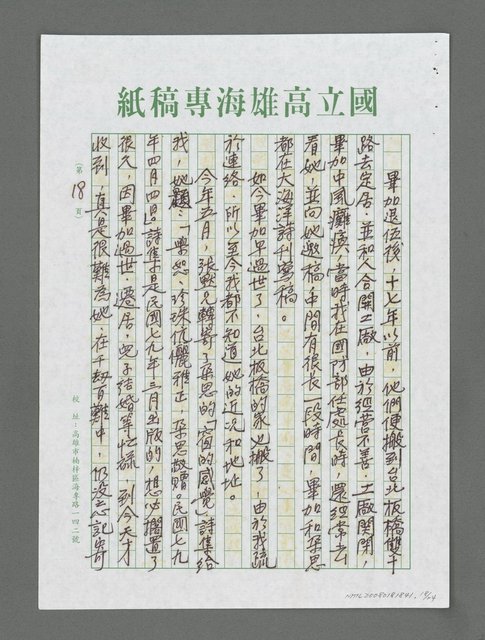 國立高雄海專稿紙
畢加退伍後，十七年以前，他們便搬到台北板橋雙十
路去定居，並和人合開工廠，由於經營不善，工廠関閉，
畢加中風癱瘓，當時我在國防部任處長時，還經常去
看她，並向她邀稿，中間有很長一段時間，畢加和朵思
都在大海洋詩刊寫稿。
如今畢加早過世了，台北板橋的家也搬了，由於我疏
於連絡，所以至今我都不知道她的近況和地址。
今年五月，張默兄轉寄了朵思的「窗的感覺」詩集給
我，她題：「樂怨、珍珠伉儷雅正，朵思敬贈。民國七九
年四月四日。詩集是民國七九年三月出版的，想必擱置了
很久，因畢加過世、遷居、兒子結婚等忙碌，到今天才
收到，真是很難為她，在千刼百難中，仍没忘記寄
(第18頁)
校址：高雄市楠梓區海專路一四二號
NMTL20080181841 18/24